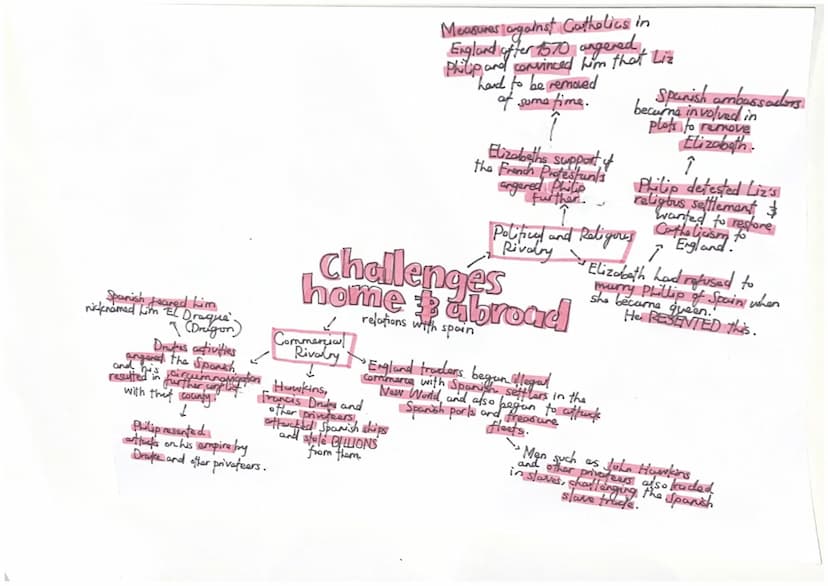 Measures against Catholics in
England after 1570 angered
Philip and convinced him that Liz
had to be removed
at some time.
Elizabeths support of
the French Protestants
angered Philip
further.
Spanish ambassadors
became involved in
plots to remove
Elizabeth.
Philip detested Liz's
religious settlement &
wanted to restore
Catholicism to
England.
Political and Religious
Rivalry
Elizabeth had refused to
marry Phillip of Spain when
she became queen.
He RESENTED this.
Challenges
home & abroad
relations with spain
Commercial
Rivalry
Spanish feared him
nicknamed him 'EL Draque'.
(Dragon)
Drakes activities
angered the Spanish
and his circumnavigation
resulted in further conflict
with that county
Philip resented
attacks on his empire by
Drake and other privateers.
Hawkins,
Francis Drake and
other privateers
attacked Spanish ships
and stole BILLIONS
from them.
England traders began illegal
commerce with Spanish settlers in the
New World, and also began to attack
Spanish ports and treasure
fleets.
Men such as John Hawkins
and other privateers also traded
in slaves, challenging the Spanish
slave trade.